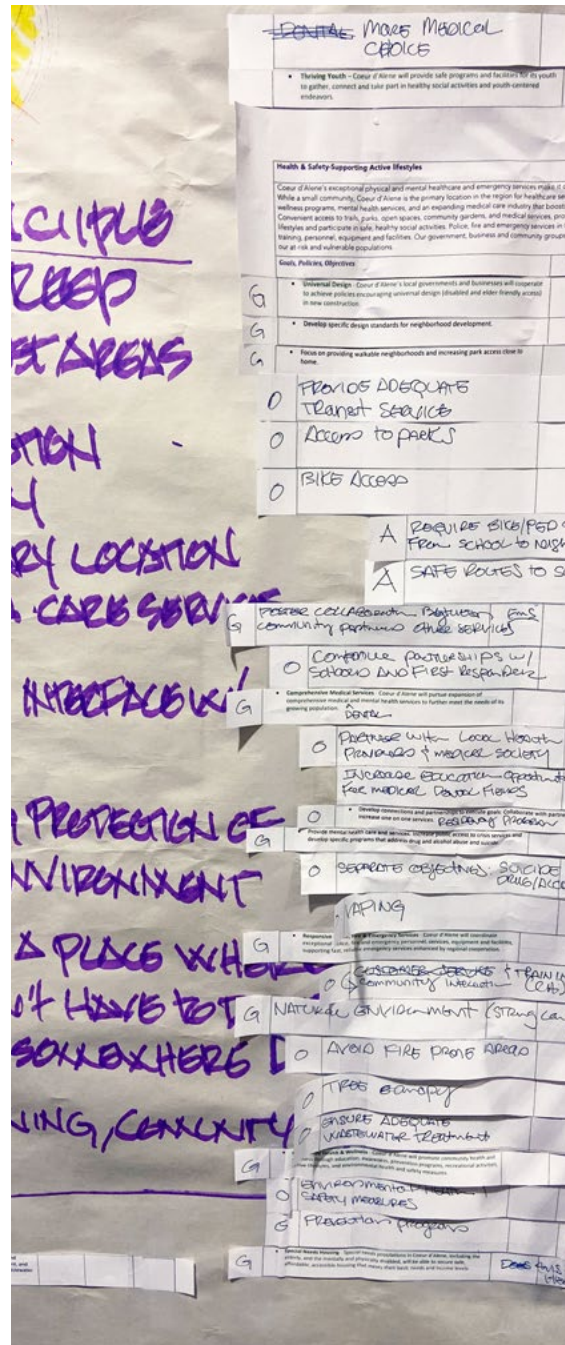 MORE MEDICAL
CHOICE
• Thriving Youth – Coeur d'Alene will provide safe programs and facilities for its youth
to gather, connect and take part in healthy social activities and youth-centered
endeavors.
Health & Safety-Supporting Active lifestyles
Coeur d'Alene's exceptional physical and mental healthcare and emergency services make it
While a small community, Coeur d'Alene is the primary location in the region for healthcare
wellness programs, mental health services, and an expanding medical care industry that
Convenient access to trails, parks, open spaces, community gardens, and medical services,
lifestyles and participate in safe, healthy social activities. Police, fire and emergency services in
training, personnel, equipment and facilities. Our government, business and community
our at risk and vulnerable populations.
Goals, Policies, Objectives
G • Universal Design - Coeur d'Alene's local governments and businesses will cooperate
to achieve policies encouraging universal design (disabled and elder friendly access)
in new construction.
G • Develop specific design standards for neighborhood development.
G • Focus on providing walkable neighborhoods and increasing park access close to
home.
O PROVIDE ADEQUATE
TRANSIT SERVICE
O ACCESS TO PARKS
O BIKE ACCESS
A REQUIRE BIKE/PED
FROM SCHOOL TO
A SAFE ROUTES TO
G FOSTER COLLABORATION BETWEEN EMS
community partners other services
O CONTINUE PARTNERSHIPS W/
SCHOOLS AND FIRST RESPONDERS
G • Comprehensive Medical Services - Coeur d'Alene will pursue expansion of
comprehensive medical and mental health services to further meet the needs of its
growing population. DENTAL
O PARTNER WITH LOCAL HEALTH
PROVIDERS & MEDICAL SOCIETY
INCREASE EDUCATION
FOR MEDICAL DENTAL FIELDS
O • Develop connections and partnerships to execute goals: Collaborate with
increase one on one services. RESIDENCY PROGRAM
G Provide mental health care and services. Increase public access to crisis services and
develop specific programs that address drug and alcohol abuse and suicide.
O SEPARATE OBJECTIVES: SUICIDE
DRUG/
VAPING
G • Responsive Emergency Services - Coeur d'Alene will coordinate
exceptional police, fire and emergency personnel services, equipment and facilities,
supporting fast, reliable emergency services enhanced by regional cooperation.
O CUSTOMER SERVICE &
COMMUNITY INTERACTION
G NATURAL ENVIRONMENT
O AVOID FIRE PRONE AREAS
O TREE CANOPY
O ENSURE ADEQUATE
WASTEWATER TREATMENT
G & Wellness - Coeur d'Alene will promote community health and
through education, awareness, prevention programs, recreational activities,
lifestyles, and environmental health and safety measures.
O ENVIRONMENTAL HEALTH
SAFETY MEASURES
G PREVENTION programs
G • Special Needs Housing - Special needs populations in Coeur d'Alene, including the
elderly, and the mentally and physically disabled, will be able to secure safe,
affordable, accessible housing that meets their basic needs and income levels
AREAS
LOCATION
CARE SERVICE
INTERFACE W/
PROTECTION OF
ENVIRONMENT
A PLACE WHERE
HAVE TO
SOMEWHERE